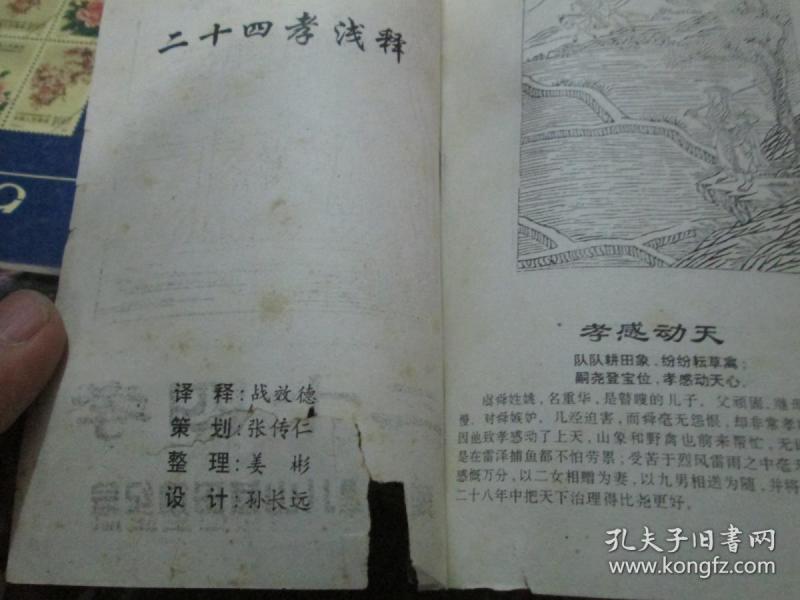 二十四孝浅释
译 释:战效德
策 划:张传仁
整 理:姜 彬
设 计:孙长远
孝感动天
队队耕田象，纷纷耘草禽；
嗣尧登宝位，孝感动天心。
虞舜姓姚，名重华，是瞽瞍的儿子。父顽固，继母
慢，对舜嫉妒，几经迫害，而舜毫无怨恨，却非常孝
因他致孝感动了上天，山象和野禽也前来帮忙，无
是在雷泽捕鱼都不怕劳累；受苦于烈风雷雨之中毫无
感慨万分，以二女相赠为妻，以九男相送为随，并将
二十八年中把天下治理得比尧更好。
孔夫子旧书网
www.kongfz.com